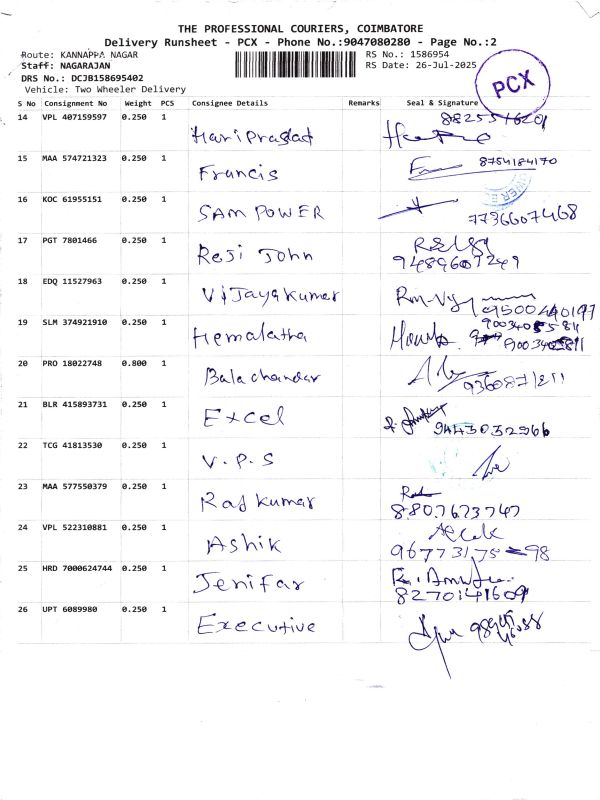 THE PROFESSIONAL COURIERS, COIMBATORE
Delivery Runsheet - PCX - Phone No.:9047080280 - Page No.:2
Route: KANNAPPA NAGAR RS No.: 1586954
Staff: NAGARAJAN RS Date: 26-Jul-2025
DRS No.: DCJB158695402
Vehicle: Two Wheeler Delivery
PCX
S No Consignment No Weight PCS Consignee Details Remarks Seal & Signature
14 VPL 407159597 0.250 1 Hariprasad
15 MAA 574721323 0.250 1 Francis 8754184170
16 KOC 61955151 0.250 1 SAM POWER 7736607468
17 PGT 7801466 0.250 1 Reji John 9489607249
18 EDQ 11527963 0.250 1 Vijayakumar 9500440197
19 SLM 374921910 0.250 1 Hemalatha
20 PRO 18022748 0.800 1 Balachandar
21 BLR 415893731 0.250 1 Excel 9443032966
22 TCG 41813530 0.250 1 V.P.S
23 MAA 577550379 0.250 1 Rajkumar 8807673747
24 VPL 522310881 0.250 1 Ashik
25 HRD 7000624744 0.250 1 Jenifar 8270141609
26 UPT 6089980 0.250 1 Executive